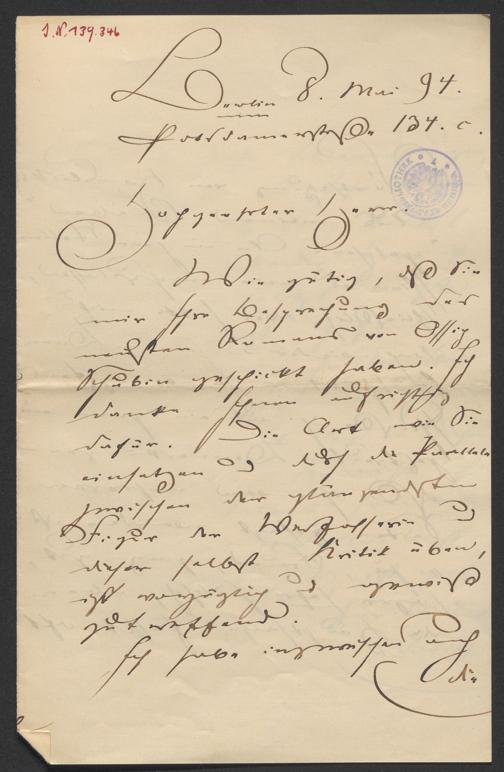 I.N. 139.346
Berlin 8. Mai 94.
Potsdamerstraße 134. c.
Hochgeehrter Herr.
Wie gütig, daß Sie
mir Ihre Besprechung des
neusten Romans von Ossip
Schubin geschickt haben. Ich
danke Ihnen aufrichtig
dafür. Die Art wie Sie
einsetzen u durch die Parallele
zwischen der glänzendsten
Figur der Verfasserin u
dieser selbst Kritik üben,
ist vorzüglich u gewiß
zutreffend.
Ich habe inzwischen auch
die